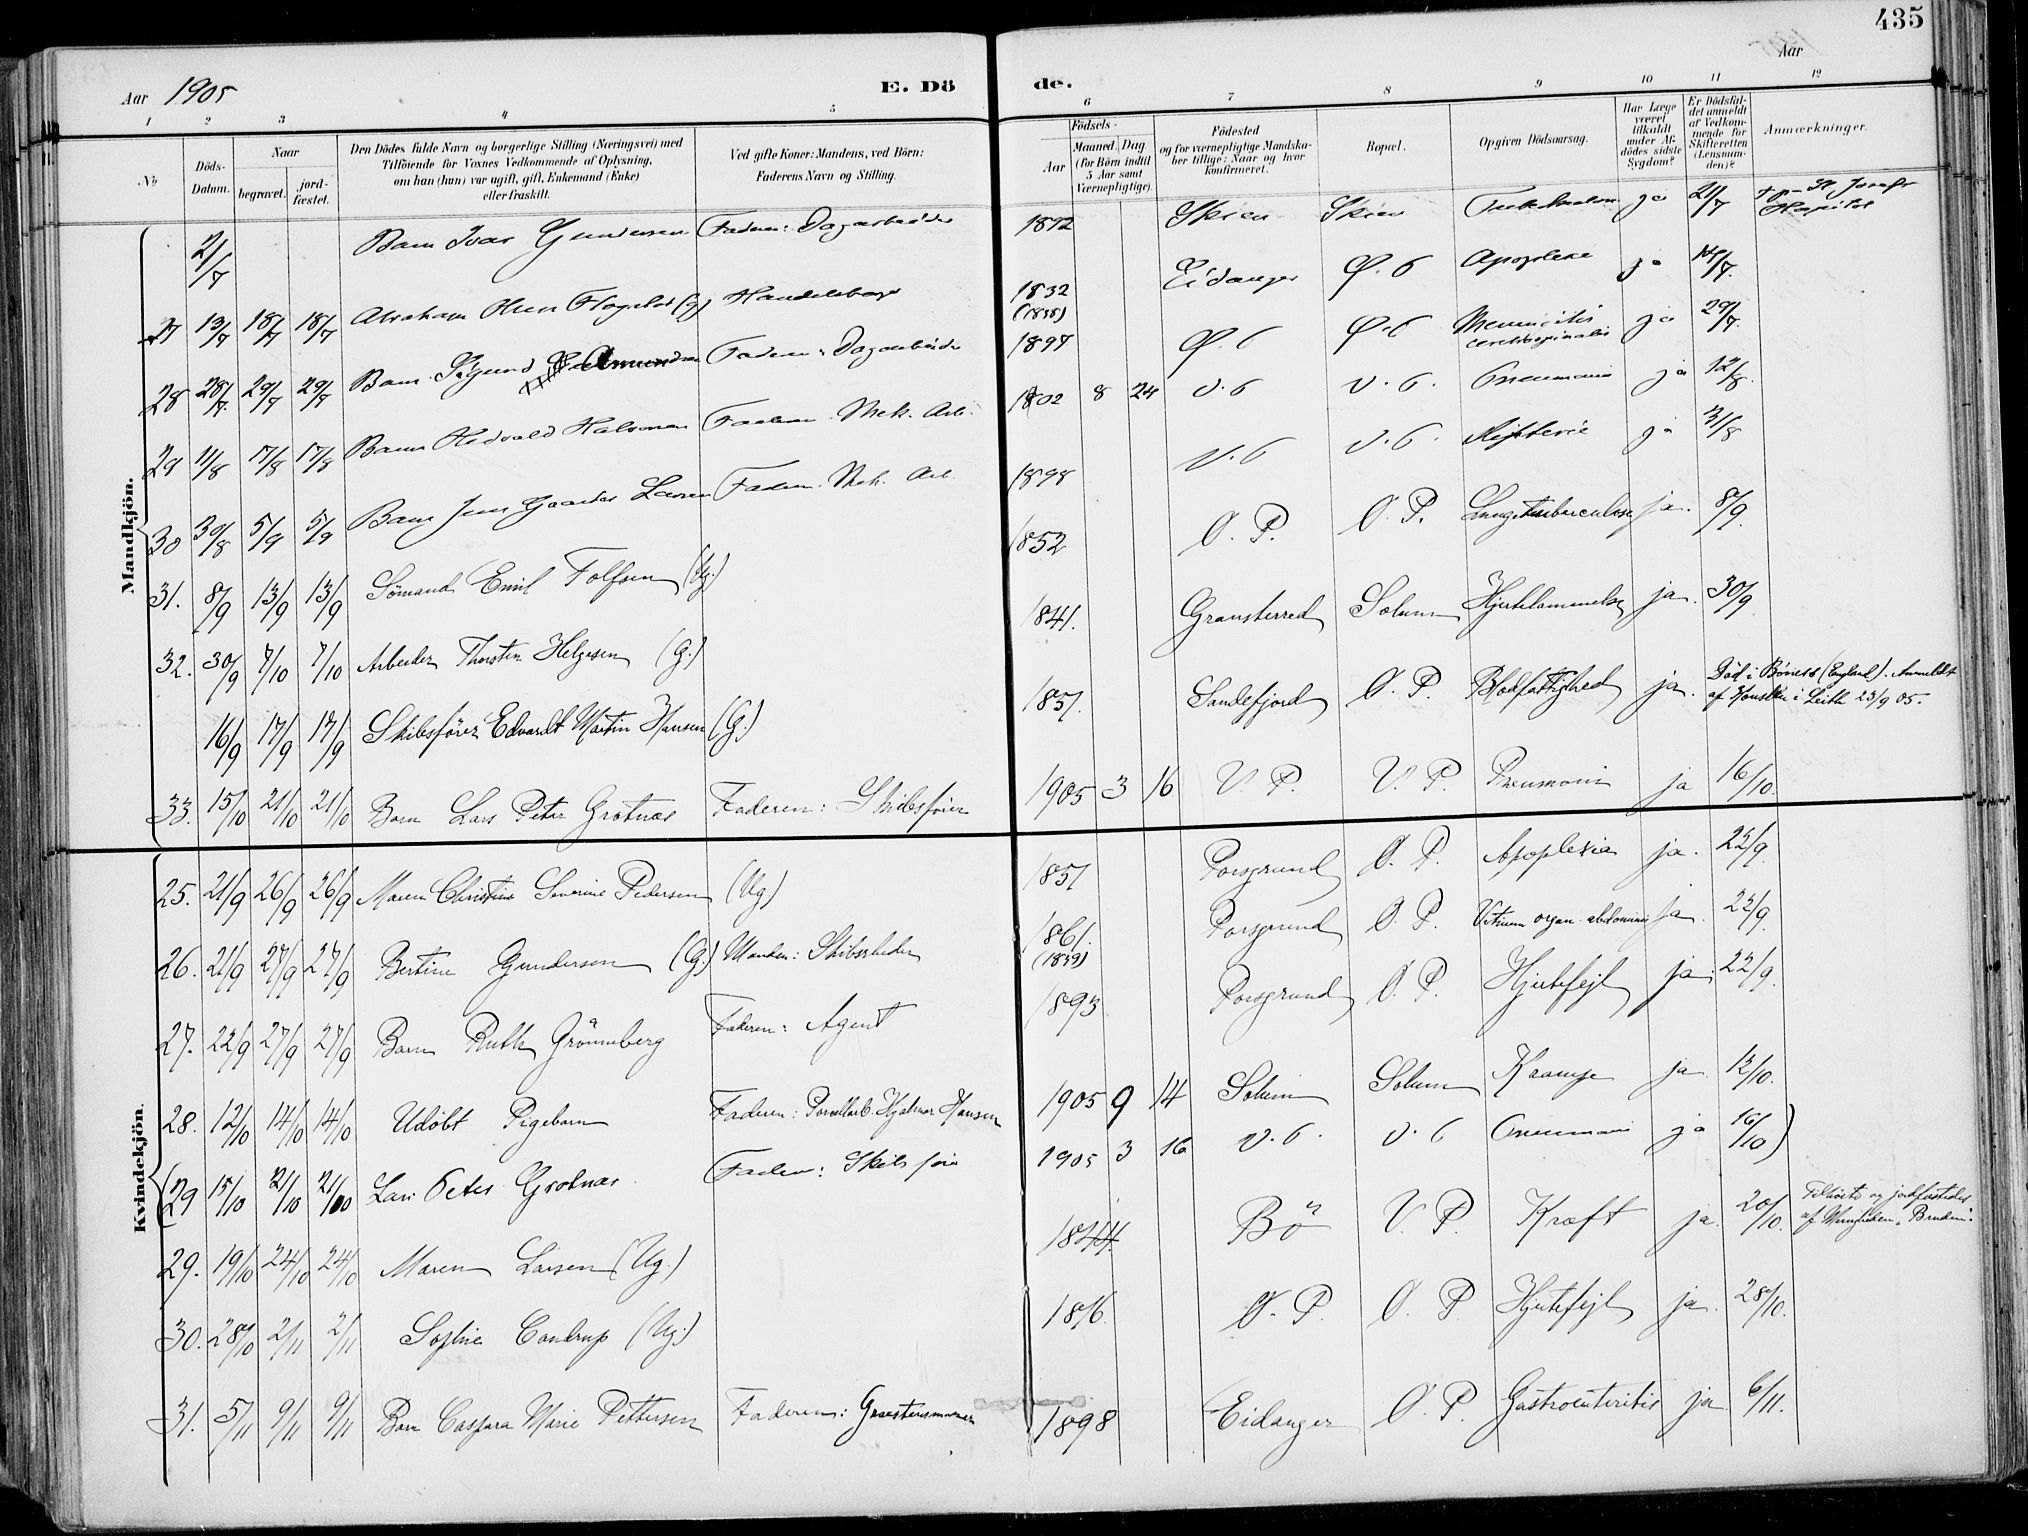 435
Aar 1905
E. Dö
de.
Aar
1 2 3 4 5 6 7 8 9 10 11 12
No
Döds-
Datum.
Naar
begravet.
jord-
fæstet.
Den Dödes fulde Navn og borgerlige Stilling (Næringsvei) med
Tilföiende for Voxnes Vedkommende af Oplysning,
om han (hun) var ugift, gift, Enkemand (Enke)
eller fraskilt.
Ved gifte Koner: Mandens, ved Börn:
Faderens Navn og Stilling.
Födsels-
Aar
Maaned. Dag
(for Börn indtil
5 Aar samt
Værnepligtige).
Födested
og for værnepligtige Mandska-
ber tillige: Naar og hvor
konfirmeret.
Bopæl.
Opgiven Dödsaarsag.
Har Læge
været
tilkaldt
under Af-
dödes sidste
Sygdom?
Er Dödsfal-
det anmeldt
af Vedkom-
mende for
Skifteretten
(Lensman-
den)?
Anmærkninger.
Mandkjön.
2/7 Barn Ivar Gundersen Faderen: Dagarbeider Skien Skien ja 21/7 St. Josefs
Hospital
27 13/7 18/7 18/7 Abraham Olsen (g) 1832
(1838) Eidanger Ø. P Apoplexi ja 14/7
28 28/7 29/7 29/7 Barn Amundsen Faderen: Dagarbeider 1897 Ø. P Ø. P Meningitis
cerebrospinalis ja 29/7
29 11/8 17/8 17/8 Barn Halvorsen Faderen Mek. Arb. 1902 8 24 V. P V. P. Pneumoni ja 12/8
30 30/8 5/9 5/9 Barn Jens Larsen Faderen Mek. Arb. 1898 V. P V. P. Difterie ja 31/8
31. 8/9 13/9 13/9 Sömand Emil Tolfsen (Ug.) 1852 Ø. P. Ø. P. Lungetuberculose ja. 8/9.
32. 30/9 7/10 7/10 Arbeider Thorsten Helgesen (G.) 1841. Gransherred Solum Hjertelammelse ja. 30/9
16/9 17/9 17/9 Skibsförer Edvardt Martin Hansen (G.) 1851. Sandefjord Ø. P. Blodfattighed ja. Död i (England). Anmeldt
af i Leith 23/9 05.
33. 15/10 21/10 21/10 Barn Lars Peter Grotnæs Faderen: Skibsförer 1905 3 16 V. P. V. P. Pneumoni ja 16/10.
Kvindekjön.
25. 21/9 26/9 26/9 Maren Christine Severine Pedersen (Ug) 1851 Porsgrund Ø. P. Apoplexia ja. 22/9.
26. 21/9 27/9 27/9 Bertine Gundersen (G.) Manden: 1861.
(1859) Porsgrund Ø. P. Vitium organ. abdominis ja. 22/9.
27. 22/9 27/9 27/9 Barn Ruth Grönneberg Faderen: Agent 1893 Porsgrund Ø. P. Hjertefejl ja. 22/9.
28. 12/10 14/10 14/10 Udöbt Pigebarn Faderen: Porcellarb. Hjalmar Hansen 1905 9 14 Solum Solum Krampe ja. 12/10.
(29 15/10 21/10 21/10 Lars Peter Grotnæs Faderen: Skibsförer 1905 3 16 V. P. V. P Pneumoni ja 16/10)
29. 19/10 24/10 24/10 Maren Larsen (Ug.) 1844. Bö V. P. Kræft ja. 20/10. Tilhörte og jordfæstedes
af Menigheden
30. 28/10 2/11 2/11 Sophie Contrup (Ug.) 1876. Ø. P. Ø. P Hjertefejl ja. 28/10.
31. 5/11 9/11 9/11 Barn Caspara Marie Pettersen Faderen: 1898 Eidanger Ø. P. Gastroenteritis ja 6/11.